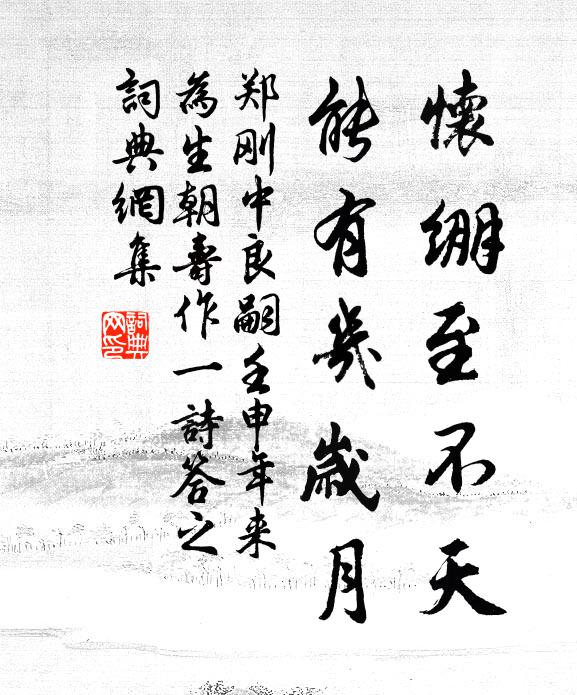 懷繃至不天
能有幾歲月
郑刚中良嗣壬申年来
為生朝壽作一詩答之
詞典網集
詞典
网印